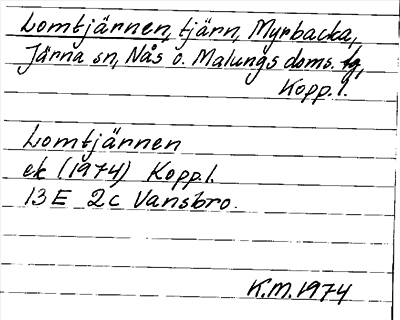 Lomtjärnen, tjärn, Myrbacka,
Järna sn, Nås o. Malungs doms. tg,
Kopp. l.
Lomtjärnen
ek (1974) Koppl.
13 E 2c Vansbro.
K.M. 1974